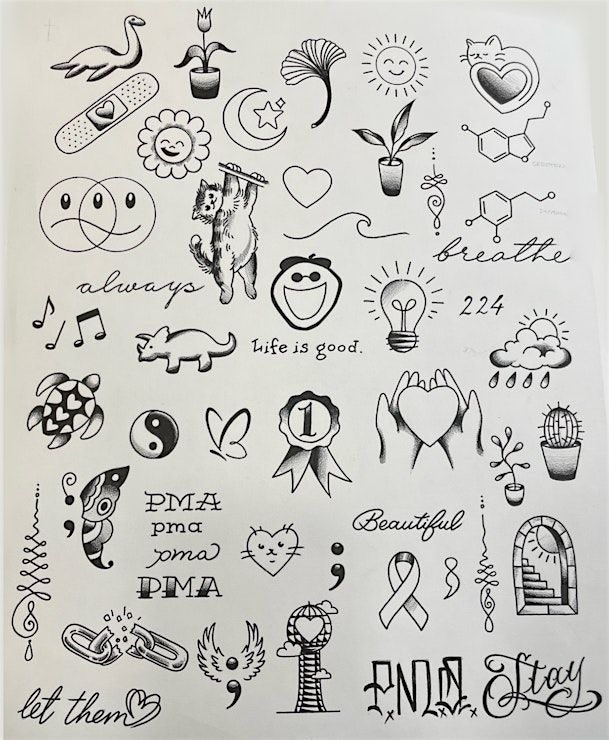 breathe
always
224
Life is good.
1
PMA
pma
pma
PMA
Beautiful
Stay
let them